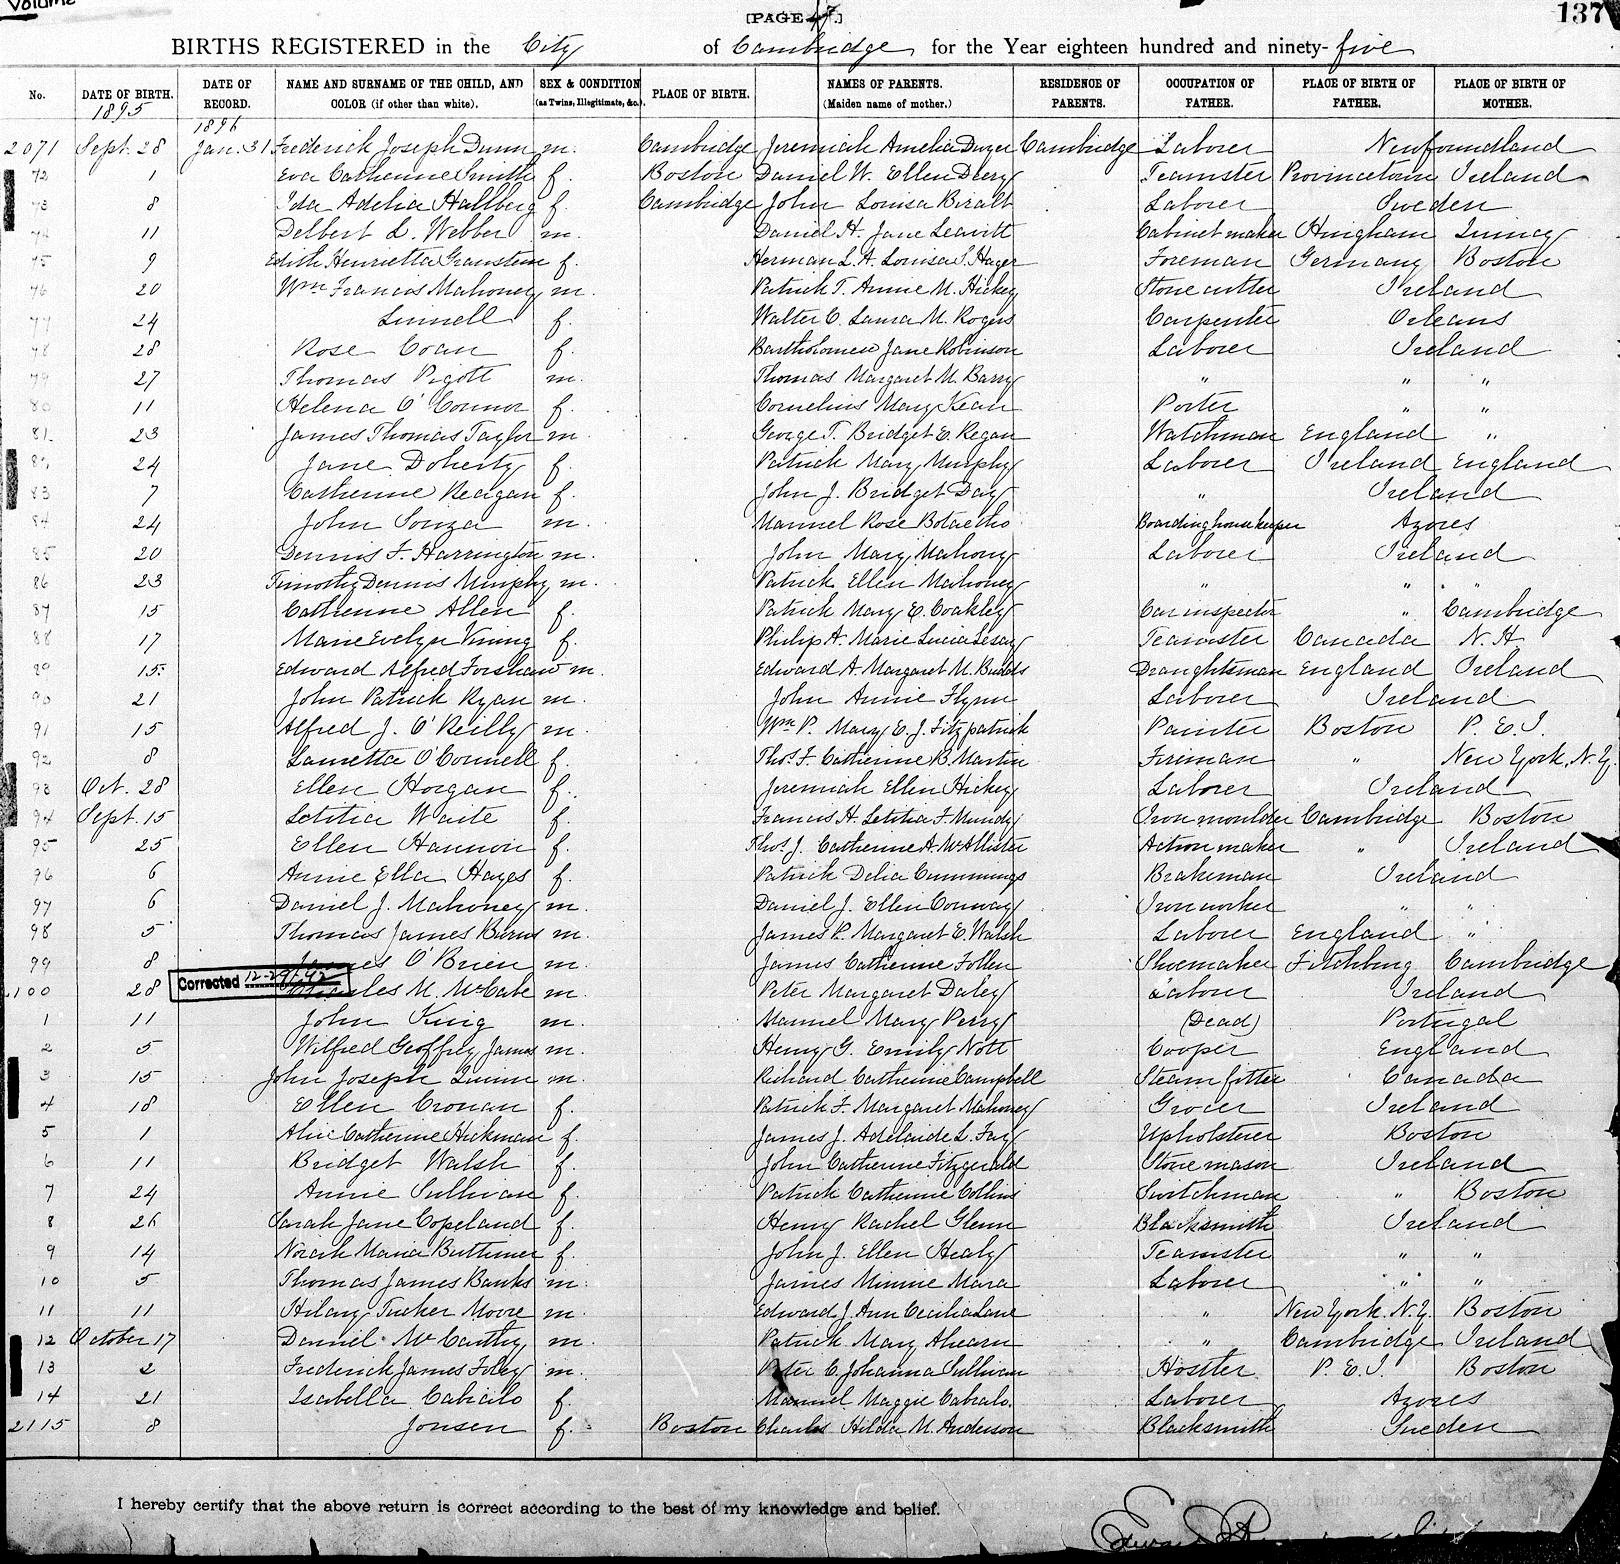 Volume
[PAGE 47.]
137
BIRTHS REGISTERED in the City of Cambridge for the Year eighteen hundred and ninety-five
No. DATE OF BIRTH. DATE OF RECORD. NAME AND SURNAME OF THE CHILD, AND COLOR (if other than white). SEX & CONDITION (as Twins, Illegitimate, &c.). PLACE OF BIRTH. NAMES OF PARENTS. (Maiden name of mother.) RESIDENCE OF PARENTS. OCCUPATION OF FATHER. PLACE OF BIRTH OF FATHER. PLACE OF BIRTH OF MOTHER.
1895 1896
2071 Sept. 28 Jan. 31 Frederick Joseph Dunn m. Cambridge Jeremiah Amelia Dwyer Cambridge Laborer Newfoundland
72 1 Eva Catherine Smith f. Boston Daniel W. Ellen Deery Teamster Provincetown Ireland
73 8 Ida Adelia Hallberg f. Cambridge John Louisa Laborer Sweden
74 11 Delbert L. Webber m. Daniel H. Jane Leavitt Cabinet maker Hingham Quincy
75 9 Edith Henrietta Granstein f. Herman L. A. Louisa S. Hager Foreman Germany Boston
76 20 Wm Francis Mahoney m. Patrick T. Annie M. Hickey Stone cutter Ireland
77 24 Linnell f. Walter C. Laura M. Rogers Carpenter Orleans
78 28 Rose Coan f. Bartholomew Jane Robinson Laborer Ireland
79 27 Thomas Pigott m. Thomas Margaret M. Barry " " "
80 11 Helena O'Connor f. Cornelius Mary Kean Porter " "
81 23 James Thomas Taylor m. George T. Bridget E. Regan Watchman England "
82 24 Jane Doherty f. Patrick Mary Murphy Laborer Ireland England
83 7 Catherine Reagan f. John J. Bridget Day " Ireland
84 24 John Souza m. Manuel Rose Botaetho Boarding house keeper Azores
85 20 Dennis F. Harrington m. John Mary Mahony Laborer Ireland
86 23 Timothy Dennis Murphy m. Patrick Ellen Mahoney " " "
87 15 Catherine Allen f. Patrick Mary E. Coakley Car inspector " Cambridge
88 17 Marie Evelyn Vining f. Philip A. Marie Lucia Lesay Teamster Canada N. H.
89 15 Edward Alfred Forshaw m. Edward A. Margaret M. Budds Draughtsman England Ireland
90 21 John Patrick Ryan m. John Annie Flynn Laborer Ireland
91 15 Alfred J. O'Reilly m. Wm P. Mary E. J. Fitzpatrick Painter Boston P. E. I.
92 8 Lauretta O'Connell f. Thos. F. Catherine B. Martin Fireman " New York, N. Y.
93 Oct. 28 Ellen Horgan f. Jeremiah Ellen Hickey Laborer Ireland
94 Sept. 15 Letitia Waite f. Francis H. Letitia F. Mundy Iron moulder Cambridge Boston
95 25 Ellen Hannon f. Thos. J. Catherine A. McAllister Action maker " Ireland
96 6 Annie Ella Hayes f. Patrick Delia Cummings Brakeman Ireland
97 6 Daniel J. Mahoney m. Daniel J. Ellen Conway Iron worker " "
98 5 Thomas James Burns m. James P. Margaret E. Walsh Laborer England "
99 8 James O'Brien m. James Catherine Follen Shoemaker Fitchburg Cambridge
Corrected
100 28 Charles M. McCabe m. Peter Margaret Daley Laborer Ireland
1 11 John King m. Manuel Mary Perry (Dead) Portugal
2 5 Wilfred Geoffrey James m. Henry G. Emily Nott Cooper England
3 15 John Joseph Quinn m. Richard Catherine Campbell Steam fitter Canada
4 18 Ellen Cronan f. Patrick F. Margaret Mahoney Grocer Ireland
5 1 Alice Catherine Hickman f. James J. Adelaide L. Fay Upholsterer Boston
6 11 Bridget Walsh f. John Catherine Fitzgerald Stone mason Ireland
7 24 Annie Sullivan f. Patrick Catherine Collins Switchman " Boston
8 26 Sarah Jane Copeland f. Henry Rachel Glenn Blacksmith Ireland
9 14 Norah Maria Buttimer f. John J. Ellen Healy Teamster " "
10 5 Thomas James Banks m. James Minnie Mara Laborer " "
11 11 Hilary Tucker Moore m. Edward J. Ann Cecilia Lane " New York. N.Y. Boston
12 October 17 Daniel McCarthy m. Patrick Mary Ahearn " Cambridge Ireland
13 2 Frederick James Foley m. Peter C. Johanna Sullivan Hostler P. E. I. Boston
14 21 Isabella Cabralo f. Manuel Maggie Cabralo. Laborer Azores
2115 8 Jonsen f. Boston Charles Hilda M. Anderson Blacksmith Sweden
I hereby certify that the above return is correct according to the best of my knowledge and belief.